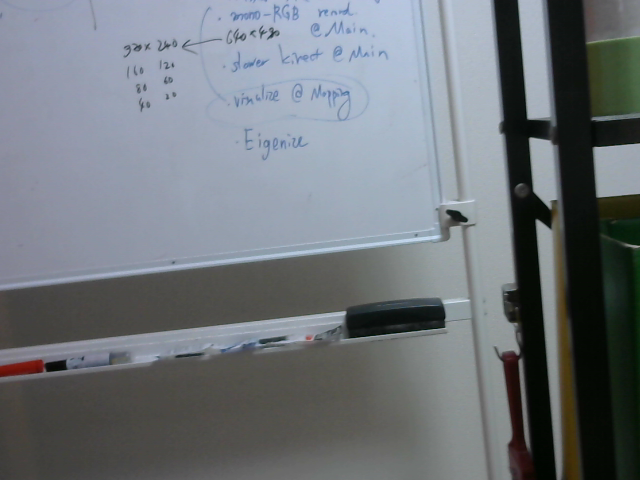 mono-RGB
320 × 240 ← 640 × 480 @ Main.
160 120
80 60
40 20
· slower kinect @ Main
· visualize @ Mapping
· Eigenize